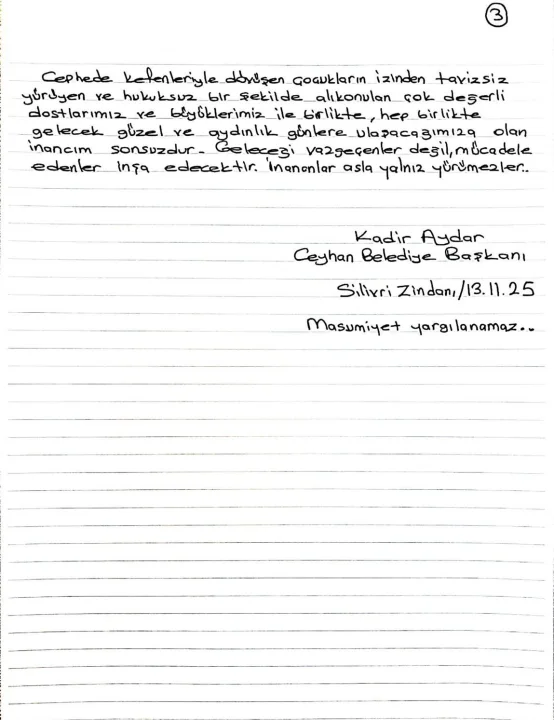 3
Cephede kefenleriyle dövüşen çocukların izinden tavizsiz
yürüyen ve hukuksuz bir şekilde alıkonulan çok değerli
dostlarımız ve büyüklerimiz ile birlikte, hep birlikte
gelecek güzel ve aydınlık günlere ulaşacağımıza olan
inancım sonsuzdur. Geleceği vazgeçenler değil, mücadele
edenler inşa edecektir. İnananlar asla yalnız yürümezler..
Kadir Aydar
Ceyhan Belediye Başkanı
Silivri Zindanı/13.11.25
Masumiyet yargılanamaz...